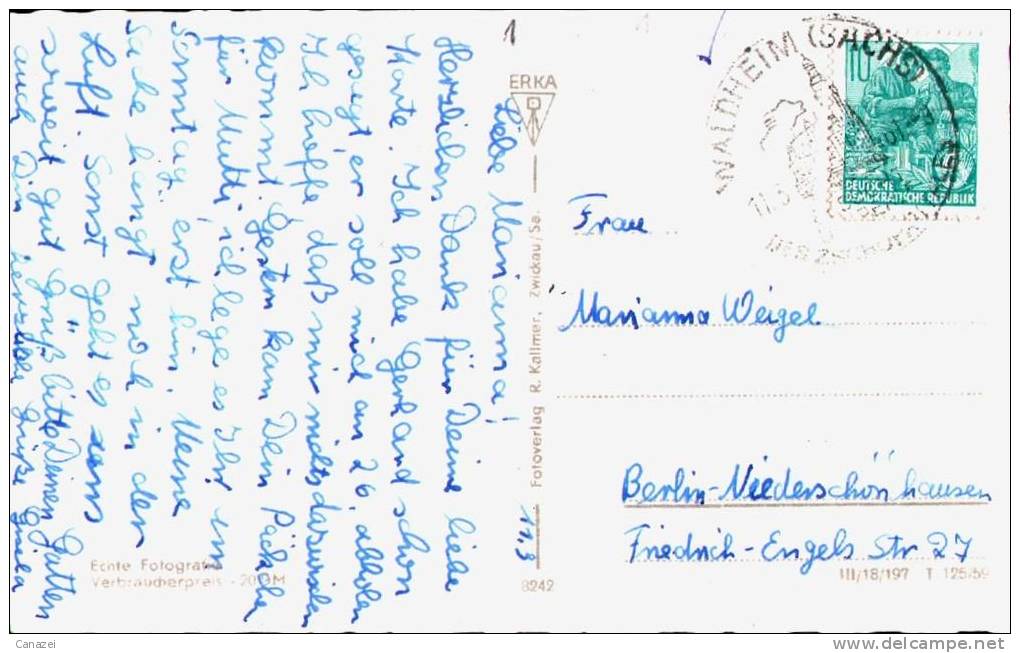 11.3
Liebe Marianna!
Herzlichen Dank für Deine liebe
Karte. Ich habe Gerhard schon
gesagt, er soll mich am 26. abholen
Ich hoffe, daß mir nichts dazwischen
kommt. Gestern kam Dein Päckchen
für Mutti, ich lege es Ihr zum
Sonntag erst hin. Meine
Sache hängt noch in der
Luft. Sonst geht es uns
soweit gut. Grüß bitte Deinen Gatten
auch Dir herzliche Grüße Gisela
1
ERKA
Fotoverlag R. Kallmer, Zwickau/Sa.
8242
Echte Fotografie
Verbraucherpreis -.20 DM
WALDHEIM (SACHS)
10
DEUTSCHE
DEMOKRATISCHE REPUBLIK
Frau
Marianna Weigel
Berlin-Niederschönhausen
Friedrich-Engels Str. 27
III/18/197 T 125/59
Canazei
www.delcampe.net